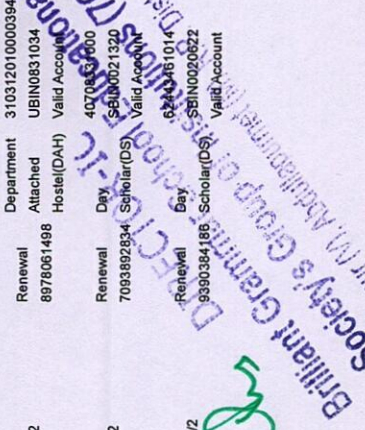 Renewal
8978061498
Department
Attached
Hostel(DAH)
310312010000394
UBIN0831034
Valid Account
2
Renewal
7093892834
Day
Scholar(DS)
SBIN0021320
Valid Account
/2
Renewal
9390384186
Day
Scholar(DS)
62443461014
SBIN0020622
Valid Account
DIRECTOR-IC
Brilliant Grammar School Educational
Society's Group of Institutions